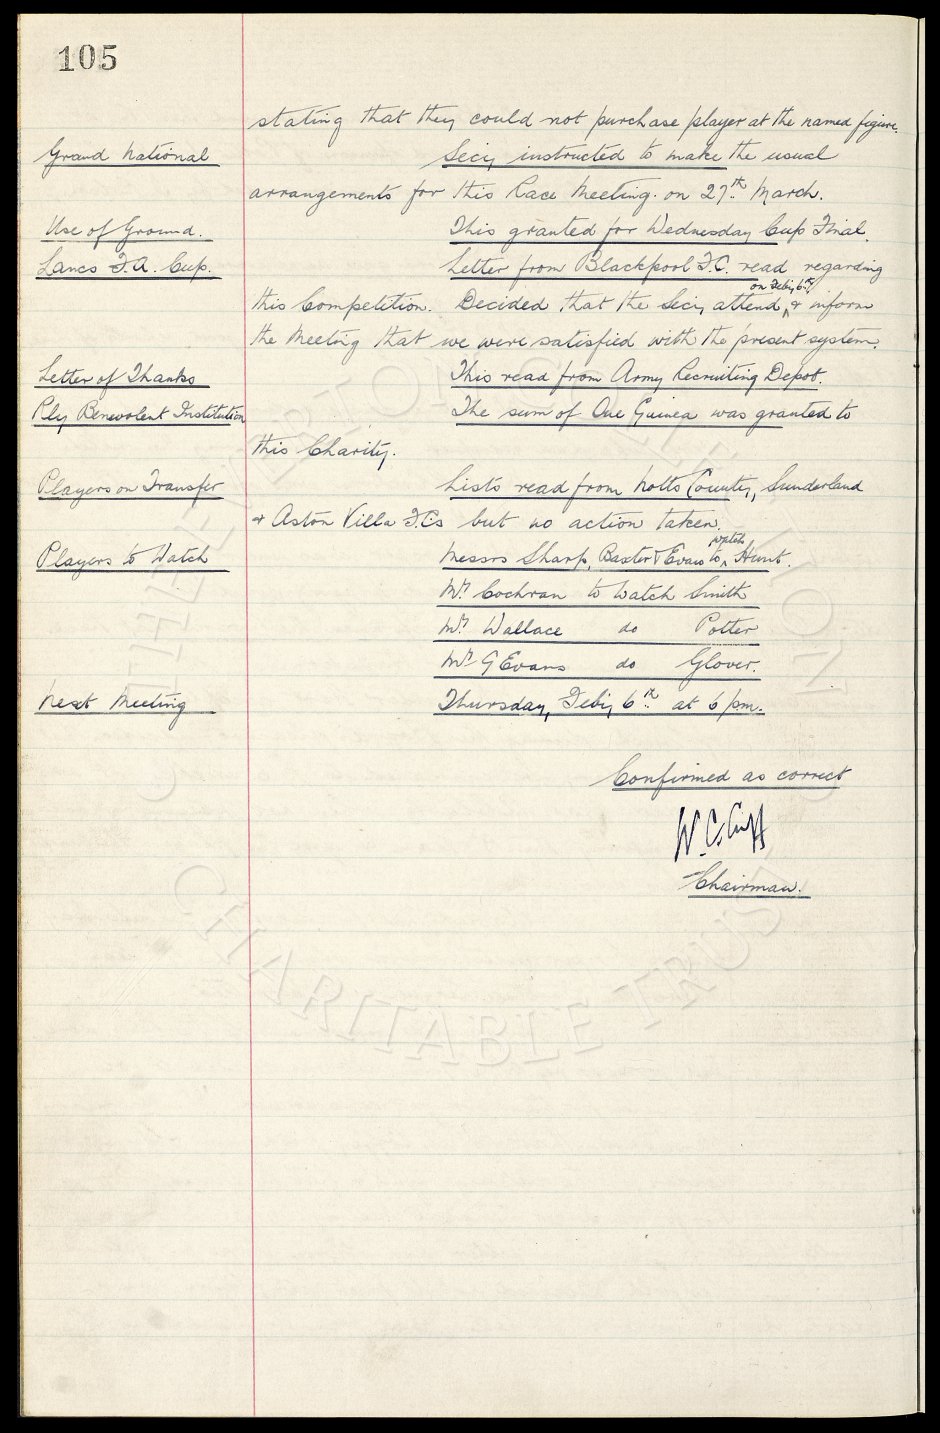 105
stating that they could not purchase player at the named figure.
Grand National Secy instructed to make the usual
arrangements for this Race Meeting. on 27th March.
Use of Ground. This granted for Wednesday Cup Final.
Lancs F.A. Cup. Letter from Blackpool F.C. read regarding
on Feby 6th
this Competition. Decided that the Secy attend, & inform
the Meeting that we were satisfied with the present system.
Letter of Thanks This read from Army Recruiting Depot.
Ply Benevolent Institution The sum of One Guinea was granted to
this Charity.
Players on Transfer Lists read from Notts County, Sunderland
& Aston Villa F.C.s but no action taken.
watch
Players to Watch Messrs Sharp, Baxter & Evans to Hunt.
Mr. Cochran to Watch Smith
Mr. Wallace do Potter
Mr. G Evans do Glover.
Next Meeting Thursday, Feby 6th at 6 p.m.
Confirmed as correct
W. C. Cuff
Chairman.
THE EVERTON COLLECTION
CHARITABLE TRUST